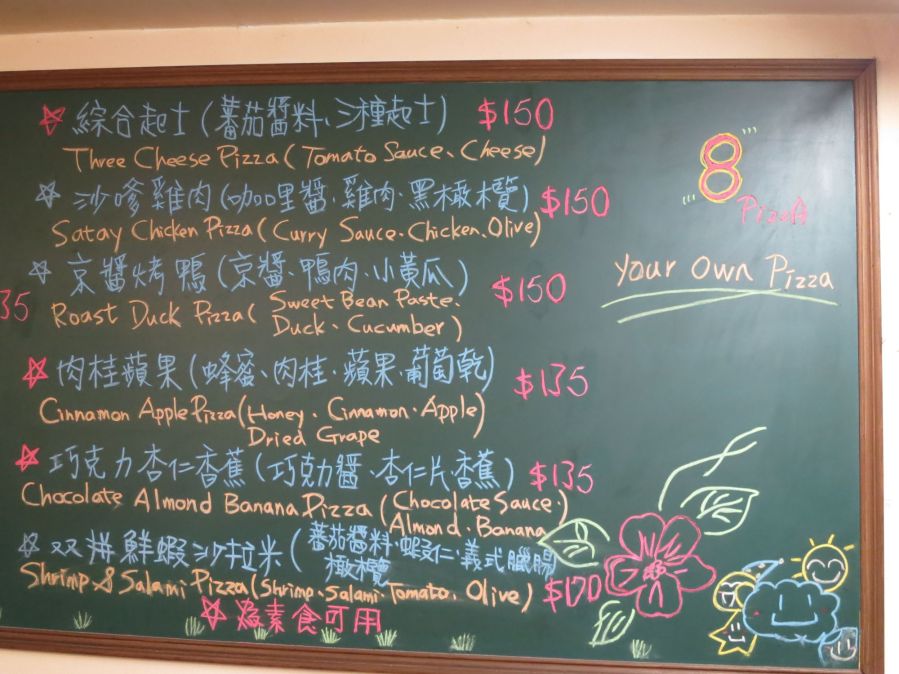 綜合起士(蕃茄醬料、三種起士) $150
Three Cheese Pizza (Tomato Sauce、Cheese)
沙嗲雞肉(咖哩醬、雞肉、黑橄欖) $150
Satay Chicken Pizza (Curry Sauce、Chicken、Olive)
京醬烤鴨(京醬、鴨肉、小黃瓜) $150
35
Roast Duck Pizza (Sweet Bean Paste、
Duck、Cucumber)
肉桂蘋果(蜂蜜、肉桂、蘋果、葡萄乾) $135
Cinnamon Apple Pizza (Honey、Cinnamon、Apple)
Dried Grape
巧克力杏仁香蕉(巧克力醬、杏仁片、香蕉) $135
Chocolate Almond Banana Pizza (Chocolate Sauce、
Almond、Banana
双拼鮮蝦沙拉米(蕃茄醬料、蝦仁、義式臘腸
橄欖
Shrimp & Salami Pizza (Shrimp、Salami、Tomato、Olive) $170
為素食可用
8
PizzA
Your Own Pizza